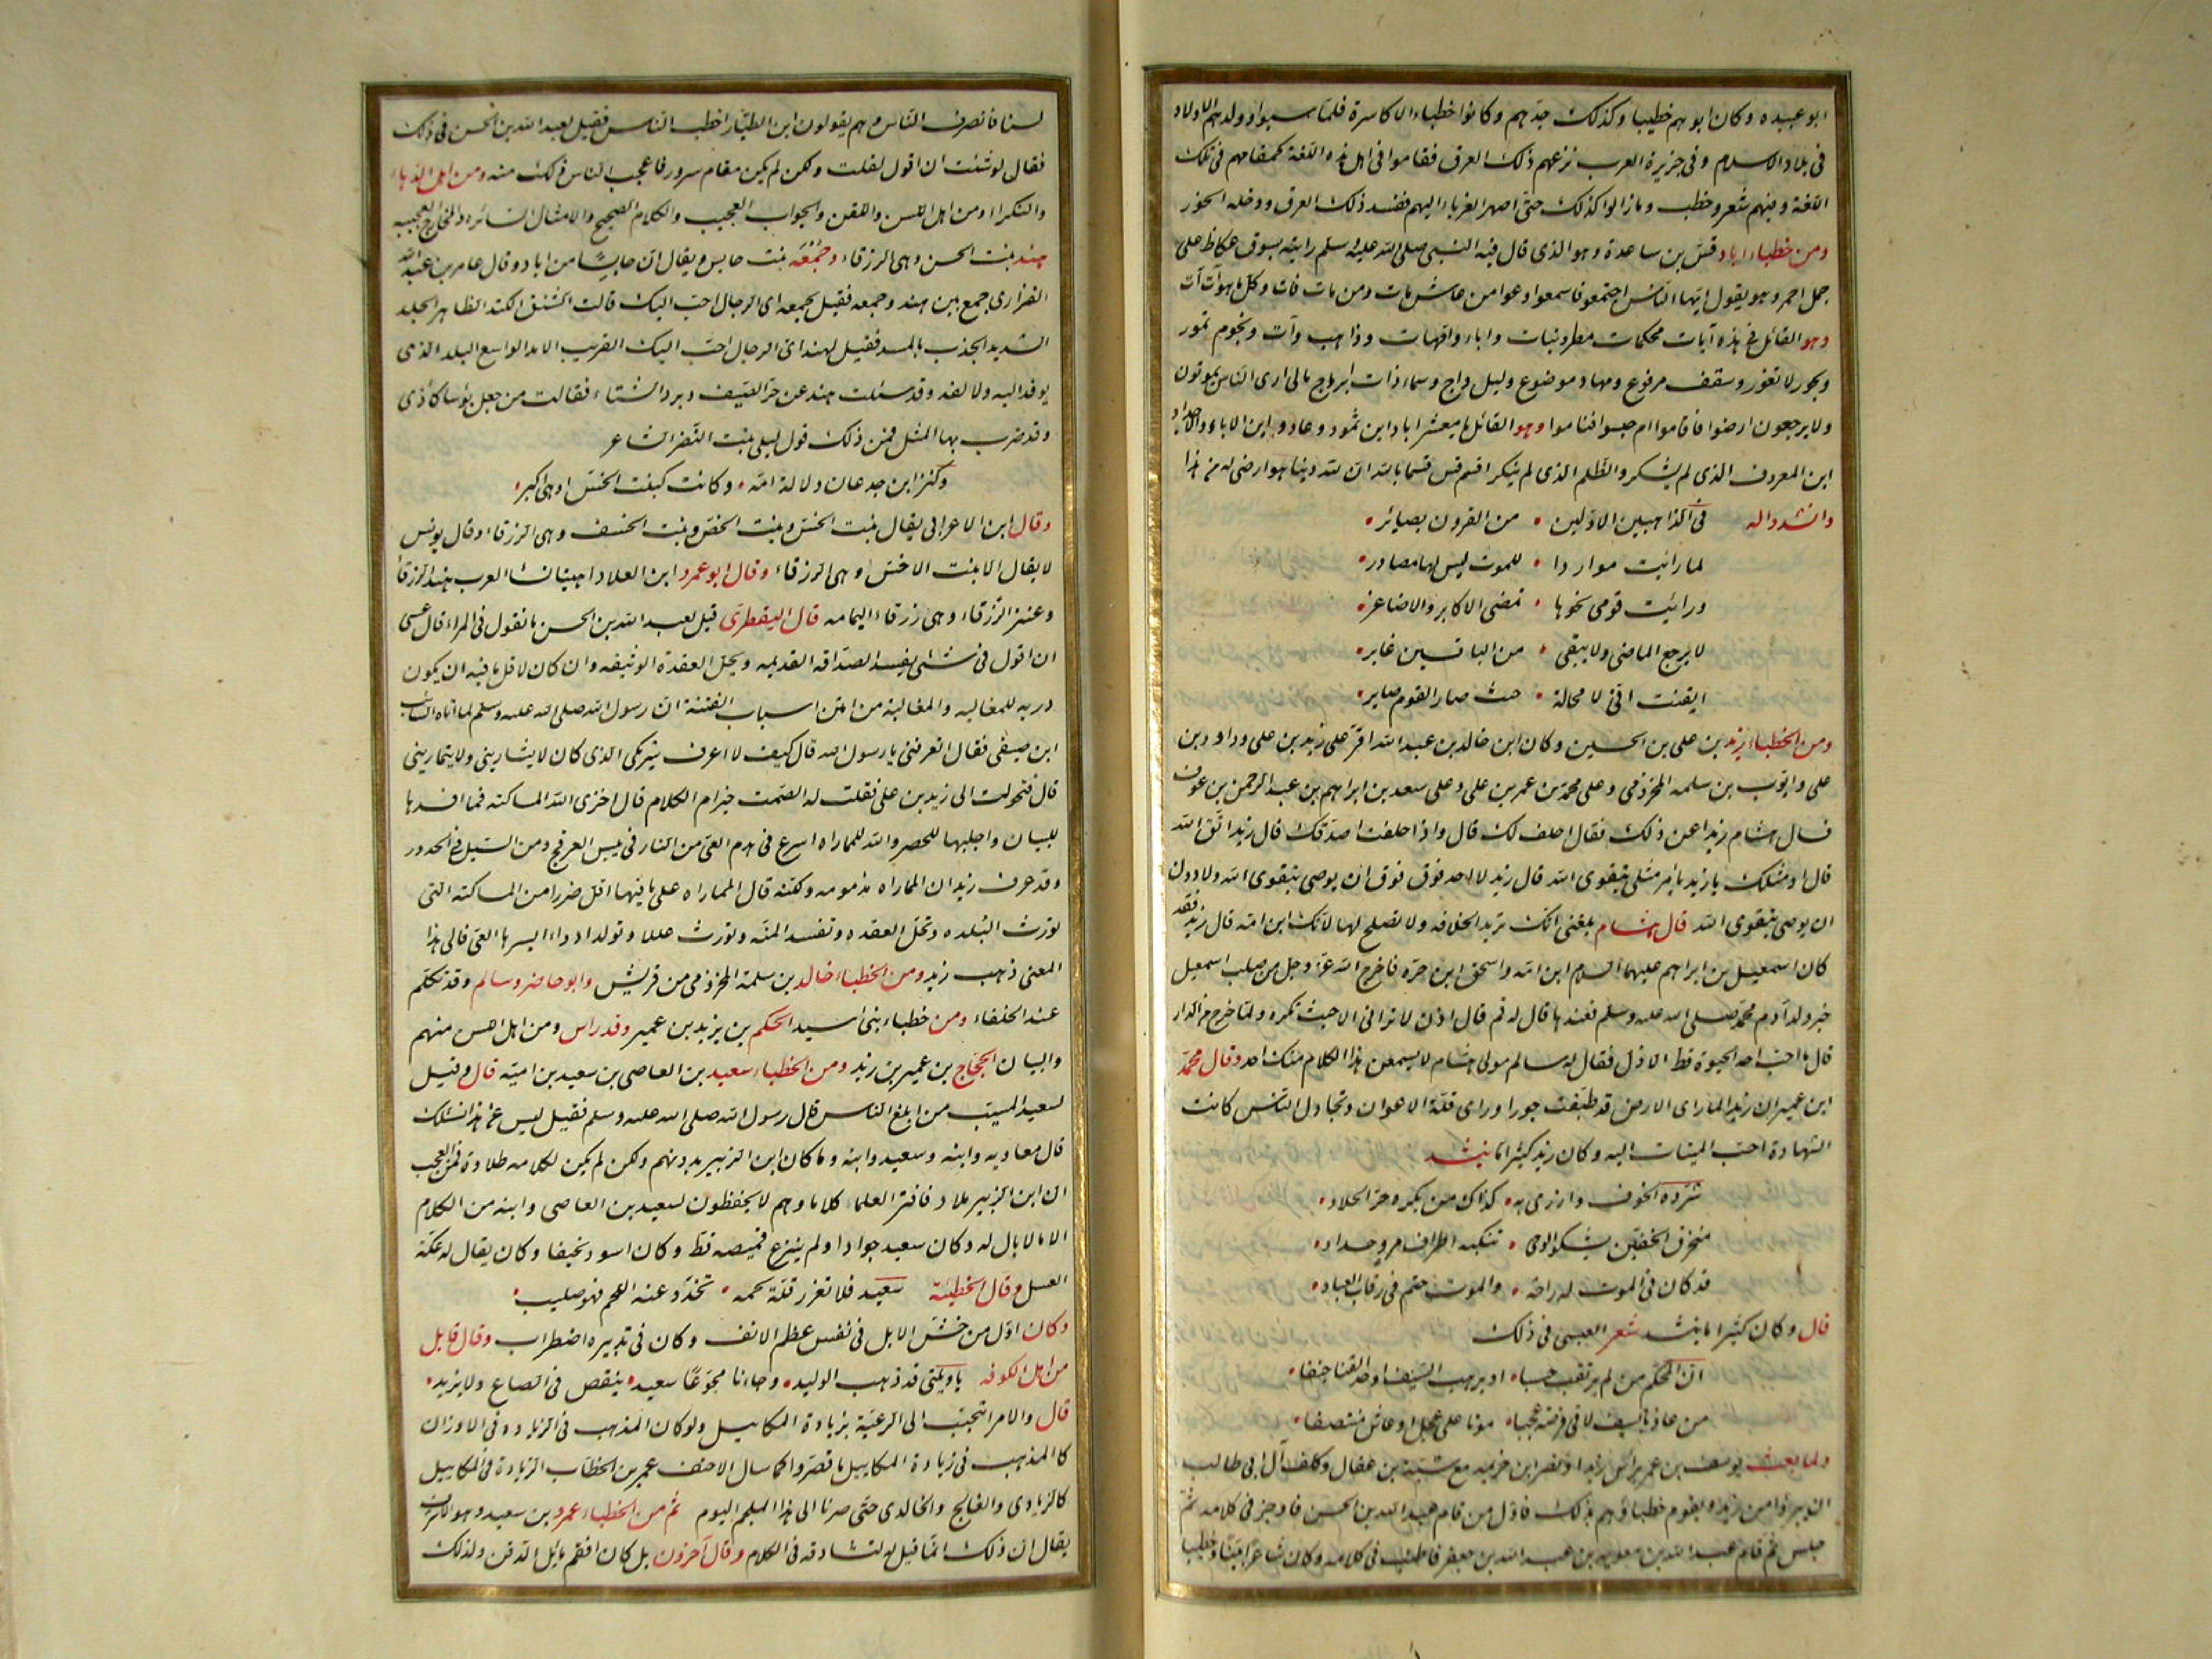 ابو عبيده وكان ابوهم خطيبا وكذلك جدهم وكانوا خطباء الاكاسرة فلما سبوا وولد لهم الاولاد
فى بلاد الاسلام وفى جزيرة العرب نزعهم ذلك العرق فقاموا فى اهل هذه اللغة كمقامهم فى تلك
اللغة وفيهم شعر وخطب وما زالوا كذلك حتى اصهر الغرباء اليهم ففسد ذلك العرق ودخله الخور
ومن خطباء اياد قس بن ساعدة وهو الذى قال فيه النبى صلى الله عليه وسلم رايته بسوق عكاظ على
جمل احمر وهو يقول ايها الناس اجتمعوا فاسمعوا وعوا من عاش مات ومن مات فات وكل ما هو آت آت
وهو القائل فى هذه آيات محكمات مطر ونبات واباء وامهات وذاهب وآت ونجوم تمور
وبحور لا تغور وسقف مرفوع ومهاد موضوع وليل داج وسماء ذات ابراج مالى ارى الناس يموتون
ولا يرجعون ارضوا فاقاموا ام حبسوا فناموا وهو القائل يا معشر اياد اين ثمود وعاد واين الاباء والاجداد
اين المعروف الذى لم يشكر والظلم الذى لم ينكر اقسم قس قسما بالله ان لله دينا هو ارضى له من هذا
وانشدوا له فى الذاهبين الاولين • من القرون بصائر •
لما رايت مواردا • للموت ليس لها مصادر •
ورايت قومى نحوها • تمضى الاكابر والاصاغر •
لا يرجع الماضى ولا يبقى • من الباقين غابر •
ايقنت انى لا محالة • حيث صار القوم صاير •
ومن الخطباء زيد بن على بن الحسين وكان ابن خالد بن عبد الله اقر على زيد بن على وداود بن
على وايوب بن سلمه المخزومى وعلى محمد بن عمر بن على وعلى سعد بن ابراهيم بن عبد الرحمن بن عوف
فسال هشام زيدا عن ذلك فقال احلف لك قال واذا حلفت اصدقك قال زيد اتق الله
قال او مثلك يا زيد يامر مثلى بتقوى الله قال زيد لا احد فوق فوق ان يوصى بتقوى الله ولا دون
ان يوصى بتقوى الله قال هشام بلغنى انك تريد الخلافه ولا تصلح لها لانك ابن امة قال زيد فقد
كان اسمعيل بن ابراهيم عليهما السلام ابن امة واسحق ابن حره فاخرج الله عز وجل من صلب اسمعيل
خير ولد آدم محمد صلى الله عليه وسلم فعندها قال له قم قال اذن لا ترانى الا حيث تكره ولما خرج من الدار
قال ما احب احد الحيوة قط الا ذل فقال له سالم مولى هشام لا يسمعن هذا الكلام منك احد وقال محمد
ابن عمير ان زيدا لما راى الارض قد طبقت جورا وراى قلة الاعوان وتخاذل الناس كانت
الشهادة احب الميتات اليه وكان زيد كثيرا ما ينشد
شرده الخوف وازرى به • كذاك من يكره حر الجلاد •
منخرق الخفين يشكو الوجى • تنكبه اطراف مرو حداد •
قد كان فى الموت له راحة • والموت حتم فى رقاب العباد •
قال وكان كثيرا ما ينشد شعر العبسى فى ذلك
ان المحكم من لم يرتقب حسبا • او يرهب السيف او حد القنا جنفا •
من عاذ بالسيف لاقى فرصة عجبا • موتا على عجل او عاش منتصفا •
ولما بعث يوسف بن عمر براس زيد ونصر ابن خزيمه مع شبة بن عقال وكلف آل ابى طالب
ان يبرؤا من زيد ويقوم خطباؤهم بذلك فاول من قام عبد الله بن الحسن فاوجز فى كلامه ثم
جلس ثم قام عبد الله بن معويه بن عبد الله بن جعفر فاطنب فى كلامه وكان شاعرا بينا وخطيبا
لسنا فانصرف الناس وهم يقولون ابن الطيار اخطب الناس فقيل لعبد الله بن الحسن فى ذلك
فقال لو شئت ان اقول لقلت ولكن لم يكن مقام سرور فاعجب الناس ذلك منه ومن اهل الدهاء
والنكراء ومن اهل اللسن واللقن والجواب العجيب والكلام الصحيح والامثال السائره والمخارج العجيبه
هند بنت الخس وهى الزرقاء وجمعة بنت حابس ويقال ان حابسا من اياد وقال عامر بن عبد الله
الفزارى جمع بين هند وجمعه فقيل لجمعه اى الرجال احب اليك قالت الشنق الكتد الظاهر الجلد
الشديد الجذب بالمسد فقيل لهند اى الرجال احب اليك القريب الامد الواسع البلد الذى
يوفد اليه ولا يفد وقد سئلت هند عن حر الصيف وبرد الشتاء فقالت من جعل بؤسا كاذى
وقد ضرب بها المثل فمن ذلك قول ليلى بنت النضر الشاعر
وكنز ابن جدعان دلالة امه • وكانت كبنت الخس او هى اكبر •
وقال ابن الاعرابى يقال بنت الخس وبنت الخص وبنت الخسف وهى الزرقاء وقال يونس
لا يقال الا بنت الاخس وهى الزرقاء وقال ابو عمرو ابن العلا داهيتا نساء العرب هند الزرقاء
وعنز الزرقاء وهى زرقاء اليمامه قال اليقطرى قيل لعبد الله بن الحسن ما تقول فى المراء قال عسى
ان اقول فى شئ يفسد الصداقه القديمه ويحل العقدة الوثيقه وان كان لاقل ما فيه ان يكون
دربه للمغالبه والمغالبة من امتن اسباب الفتنة ان رسول الله صلى الله عليه وسلم لما اتاه السائب
ابن صيفى فقال اتعرفنى يا رسول الله قال كيف لا اعرف شريكى الذى كان لا يشارينى ولا يمارينى
قال فتحولت الى زيد بن على فقلت له الصمت خير ام الكلام قال اخزى الله المساكته فما افسدها
للبيان واجلبها للحصر والله للمماراه اسرع فى هدم العى من النار فى يبس العرفج ومن السيل فى الحدور
وقد عرف زيد ان المماراه مذمومه ولكنه قال المماراه على ما فيها اقل ضررا من المساكته التى
تورث البلده وتحل العقده وتفسد المنه وتورث عللا وتولد ادواء ايسرها العى فالى هذا
المعنى ذهب زيد ومن الخطباء خالد بن سلمة المخزومى من قريش وابو حاضر وسالم وقد تكلم
عند الخلفاء ومن خطباء بنى اسيد الحكم بن يزيد بن عمير وقد راس ومن اهل اللسن منهم
والبيان الحجاج بن عمير بن زيد ومن الخطباء سعيد بن العاصى بن سعيد بن اميه قال وقيل
لسعيد المسيب من ابلغ الناس قال رسول الله صلى الله عليه وسلم فقيل ليس عن هذا نسئلك
قال معاويه وابنه وسعيد وابنه وما كان ابن الزبير بدونهم ولكن لم يكن لكلامه طلاوة فمن العجب
ان ابن الزبير ملا دفاتر العلماء كلاما وهم لا يحفظون لسعيد بن العاصى وابنه من الكلام
الا ما لا بال له وكان سعيد جوادا ولم ينزع قميصه قط وكان اسود نحيفا وكان يقال له عكة
العسل وقال الحطيئة سعيد فلا تغرر قلة لحمه • تخدد عنه اللحم فهو صليب •
وكان اول من خش الابل فى نفس عظم الانف وكان فى تدبيره اضطراب وقال قايل
من اهل الكوفه يا ويلتى قد ذهب الوليد • وجاءنا مجوعا سعيد • ينقص فى الصاع ولا يزيد •
قال والامراء تتحبب الى الرعية بزيادة المكاييل ولو كان المذهب فى الزياده فى الاوزان
كالمذهب فى زيادة المكاييل ما قصروا كما سال الاحنف عمر بن الخطاب الزيادة فى المكاييل
كالزيادى والفالج والخالدى حتى صرنا الى هذا الملجم اليوم ثم من الخطباء عمرو بن سعيد وهو الاشرف
يقال ان ذلك انما قيل له لتشادقه فى الكلام وقال آخرون بل كان افقم مائل الذقن ولذلك